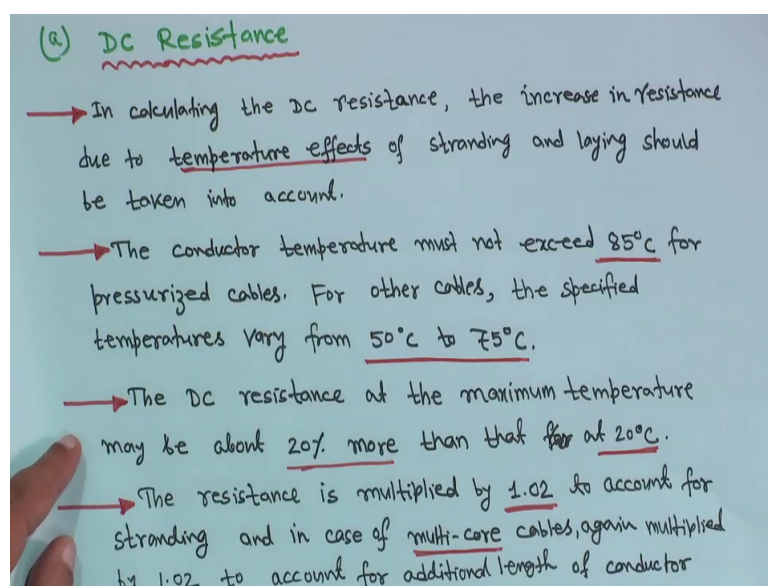 (a) DC Resistance
In calculating the DC resistance, the increase in resistance
due to temperature effects of stranding and laying should
be taken into account.
The conductor temperature must not exceed 85°C for
pressurized cables. For other cables, the specified
temperatures vary from 50°C to 75°C.
The DC resistance at the maximum temperature
may be about 20% more than that at 20°C.
The resistance is multiplied by 1.02 to account for
stranding and in case of multi-core cables, again multiplied
by 1.02 to account for additional length of conductor